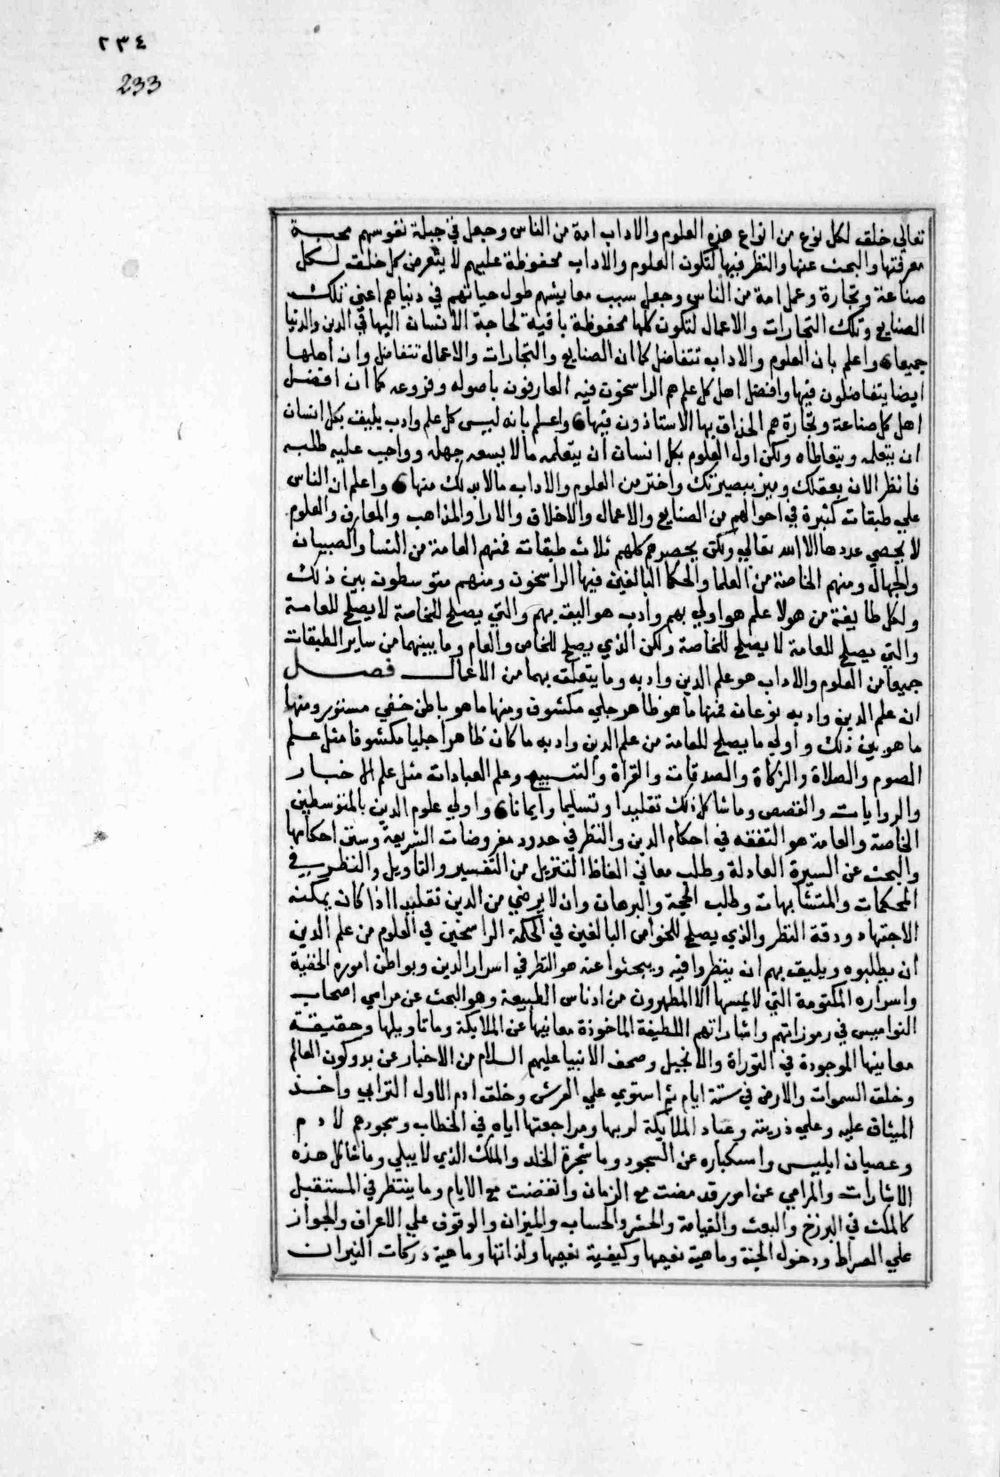 ٢٣٤
233
تعالي خلق لكل نوع من انواع هذه العلوم والاداب امة من الناس وجعل في جبلة نفوسهم محبة
معرفتها والبحث عنها والنظر فيها لتكون العلوم والاداب محفوظة عليهم لا يتعرض كل خلقه لكل
صناعة وتجارة وعمل امة من الناس وجعل سبب معايشهم طول حياتهم في دنياهم اعني تلك
الصنايع وتلك التجارات والاعمال لتكون كلها محفوظة باقية لحاجة الانسان اليها في الدين والدنيا
جميعا واعلم بان العلوم والاداب تتفاضل كما ان الصنايع والتجارات والاعمال تتفاضل وان اهلها
ايضا يتفاضلون فيها وافضل اهل كل علم هم الراسخون فيه العارفون باصوله وفروعه كما ان افضل
اهل كل صناعة وتجارة هم الحذاق بها الاستاذون فيها واعلم بانه ليس كل علم وادب يليق بكل انسان
ان يتعلمه ويتعاطاه ولكن اولي العلوم بكل انسان ان يتعلمه ما لا يسعه جهله وواجب عليه طلبه
فانظر الان بعقلك وميز ببصيرتك واختر من العلوم والاداب ما لابد لك منها واعلم ان الناس
علي طبقات كثيرة في احوالهم من الصنايع والاعمال والاخلاق والارا والمذاهب والمعارف والعلوم
لا يحصي عددها الا الله تعالي ولكن يحصرهم كلهم ثلاثه طبقات فمنهم العامة من النسا والصبيان
والجهال ومنهم الخاصة من العلما والحكما البالغين فيها الراسخون ومنهم متوسطون بين ذلك
ولكل طايفة من هولا علم هو اولي بهم وادب هو اليق بهم والتي يصلح للخاصة لا يصلح للعامة
والتي يصلح للعامة لا يصلح للخاصة ولكن الذي يصلح للخاص والعام وما بينهما من ساير الطبقات
جميعا من العلوم والاداب هو علم الدين وادبه وما يتعلق بهما من الاعمال فصل
ان علم الدين وادبه نوعان فمنها ما هو ظاهر جلي مكشوف ومنها ما هو باطن خفي مستور ومنها
ما هو بين ذلك واولي ما يصلح للعامة من علم الدين وادبه ما كان ظاهرا جليا مكشوفا مثل علم
الصوم والصلاة والزكاة والصدقات والقراة والتسبيح وعلم العبادات مثل علم الاخبار
والروايات والقصص وما شاكل ذلك تقليدا وتسليما وايمانا واولي علوم الدين بالمتوسطين
الخاصة والعامة هو التفقه في احكام الدين والنظر في حدود مفروضات الشريعة وسنن احكامها
والبحث عن السيرة العادلة وطلب معاني الفاظ التنزيل من التفسير والتاويل والنظر في
المحكمات والمتشابهات وطلب الحجة والبرهان وان لا يرضي من الدين تقليدا اذا كان يمكنه
الاجتهاد ودقة النظر والذي يصلح للخواص البالغين في الحكمة الراسخين في العلوم من علم الدين
ان يطلبوه ويليق بهم ان ينظروا فيه ويبحثوا عنه هو النظر في اسرار الدين وبواطن اموره الخفية
واسراره المكتومة التي لا يمسها الا المطهرون من ادناس الطبيعة وهو البحث عن مرامي اصحاب
النواميس في رموزاتهم واشاراتهم اللطيفة الماخوذة معانيها عن الملايكة وما تاويلها وحقيقة
معانيها الموجودة في التوراة والانجيل وصحف الانبيا عليهم السلام من الاخبار عن بدو كون العالم
وخلق السموات والارض في ستة ايام ثم استوي علي العرش وخلق ادم الاول الترابي واخذ
الميثاق عليه وعلي ذريته وعتاد الملايكة لربها ومراجعتها اياه في الخطاب وسجودهم لادم
وعصيان ابليس واستكباره عن السجود وما شجرة الخلد والملك الذي لا يبلي وما شاكل هذه
الاشارات والمرامي عن امور قد مضت مع الزمان وانقضت مع الايام وما ينتظر في المستقبل
كالمكث في البرزخ والبعث والقيامة والحشر والحساب والميزان والوقوف علي الاعراف والجواز
علي الصراط ودخول الجنة وماهية نعيمها وكيفية نعيمها ولذاتها وماهية دركات النيران